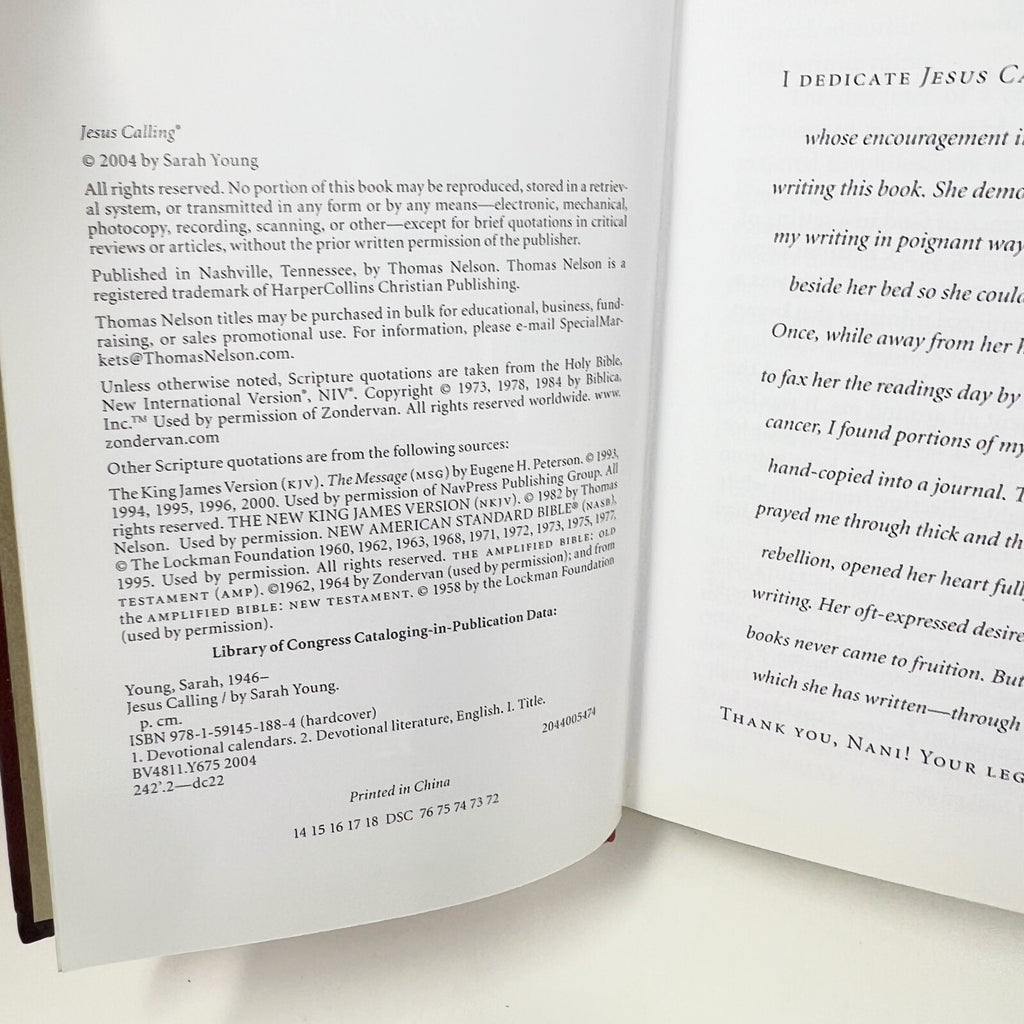 Jesus Calling®
© 2004 by Sarah Young
All rights reserved. No portion of this book may be reproduced, stored in a retriev-
al system, or transmitted in any form or by any means—electronic, mechanical,
photocopy, recording, scanning, or other—except for brief quotations in critical
reviews or articles, without the prior written permission of the publisher.
Published in Nashville, Tennessee, by Thomas Nelson. Thomas Nelson is a
registered trademark of HarperCollins Christian Publishing.
Thomas Nelson titles may be purchased in bulk for educational, business, fund-
raising, or sales promotional use. For information, please e-mail SpecialMar-
kets@ThomasNelson.com.
Unless otherwise noted, Scripture quotations are taken from the Holy Bible,
New International Version®, NIV®. Copyright © 1973, 1978, 1984 by Biblica,
Inc.™ Used by permission of Zondervan. All rights reserved worldwide. www.
zondervan.com
Other Scripture quotations are from the following sources:
The King James Version (KJV). The Message (MSG) by Eugene H. Peterson. © 1993,
1994, 1995, 1996, 2000. Used by permission of NavPress Publishing Group. All
rights reserved. THE NEW KING JAMES VERSION (NKJV). © 1982 by Thomas
Nelson. Used by permission. NEW AMERICAN STANDARD BIBLE® (NASB),
© The Lockman Foundation 1960, 1962, 1963, 1968, 1971, 1972, 1973, 1975, 1977,
1995. Used by permission. All rights reserved. THE AMPLIFIED BIBLE: OLD
TESTAMENT (AMP). ©1962, 1964 by Zondervan (used by permission); and from
the AMPLIFIED BIBLE: NEW TESTAMENT. © 1958 by the Lockman Foundation
(used by permission).
Library of Congress Cataloging-in-Publication Data:
Young, Sarah, 1946–
Jesus Calling / by Sarah Young.
p. cm.
ISBN 978-1-59145-188-4 (hardcover)
1. Devotional calendars. 2. Devotional literature, English. I. Title.
BV4811.Y675 2004
242'.2—dc22
2044005474
Printed in China
14 15 16 17 18 DSC 76 75 74 73 72
I DEDICATE JESUS
whose encouragement
writing this book. She
my writing in poignant
beside her bed so she
Once, while away from her
to fax her the readings day by
cancer, I found portions of my
hand-copied into a journal.
prayed me through thick and
rebellion, opened her heart
writing. Her oft-expressed desire
books never came to fruition. But
which she has written—through
THANK YOU, NANI! YOUR